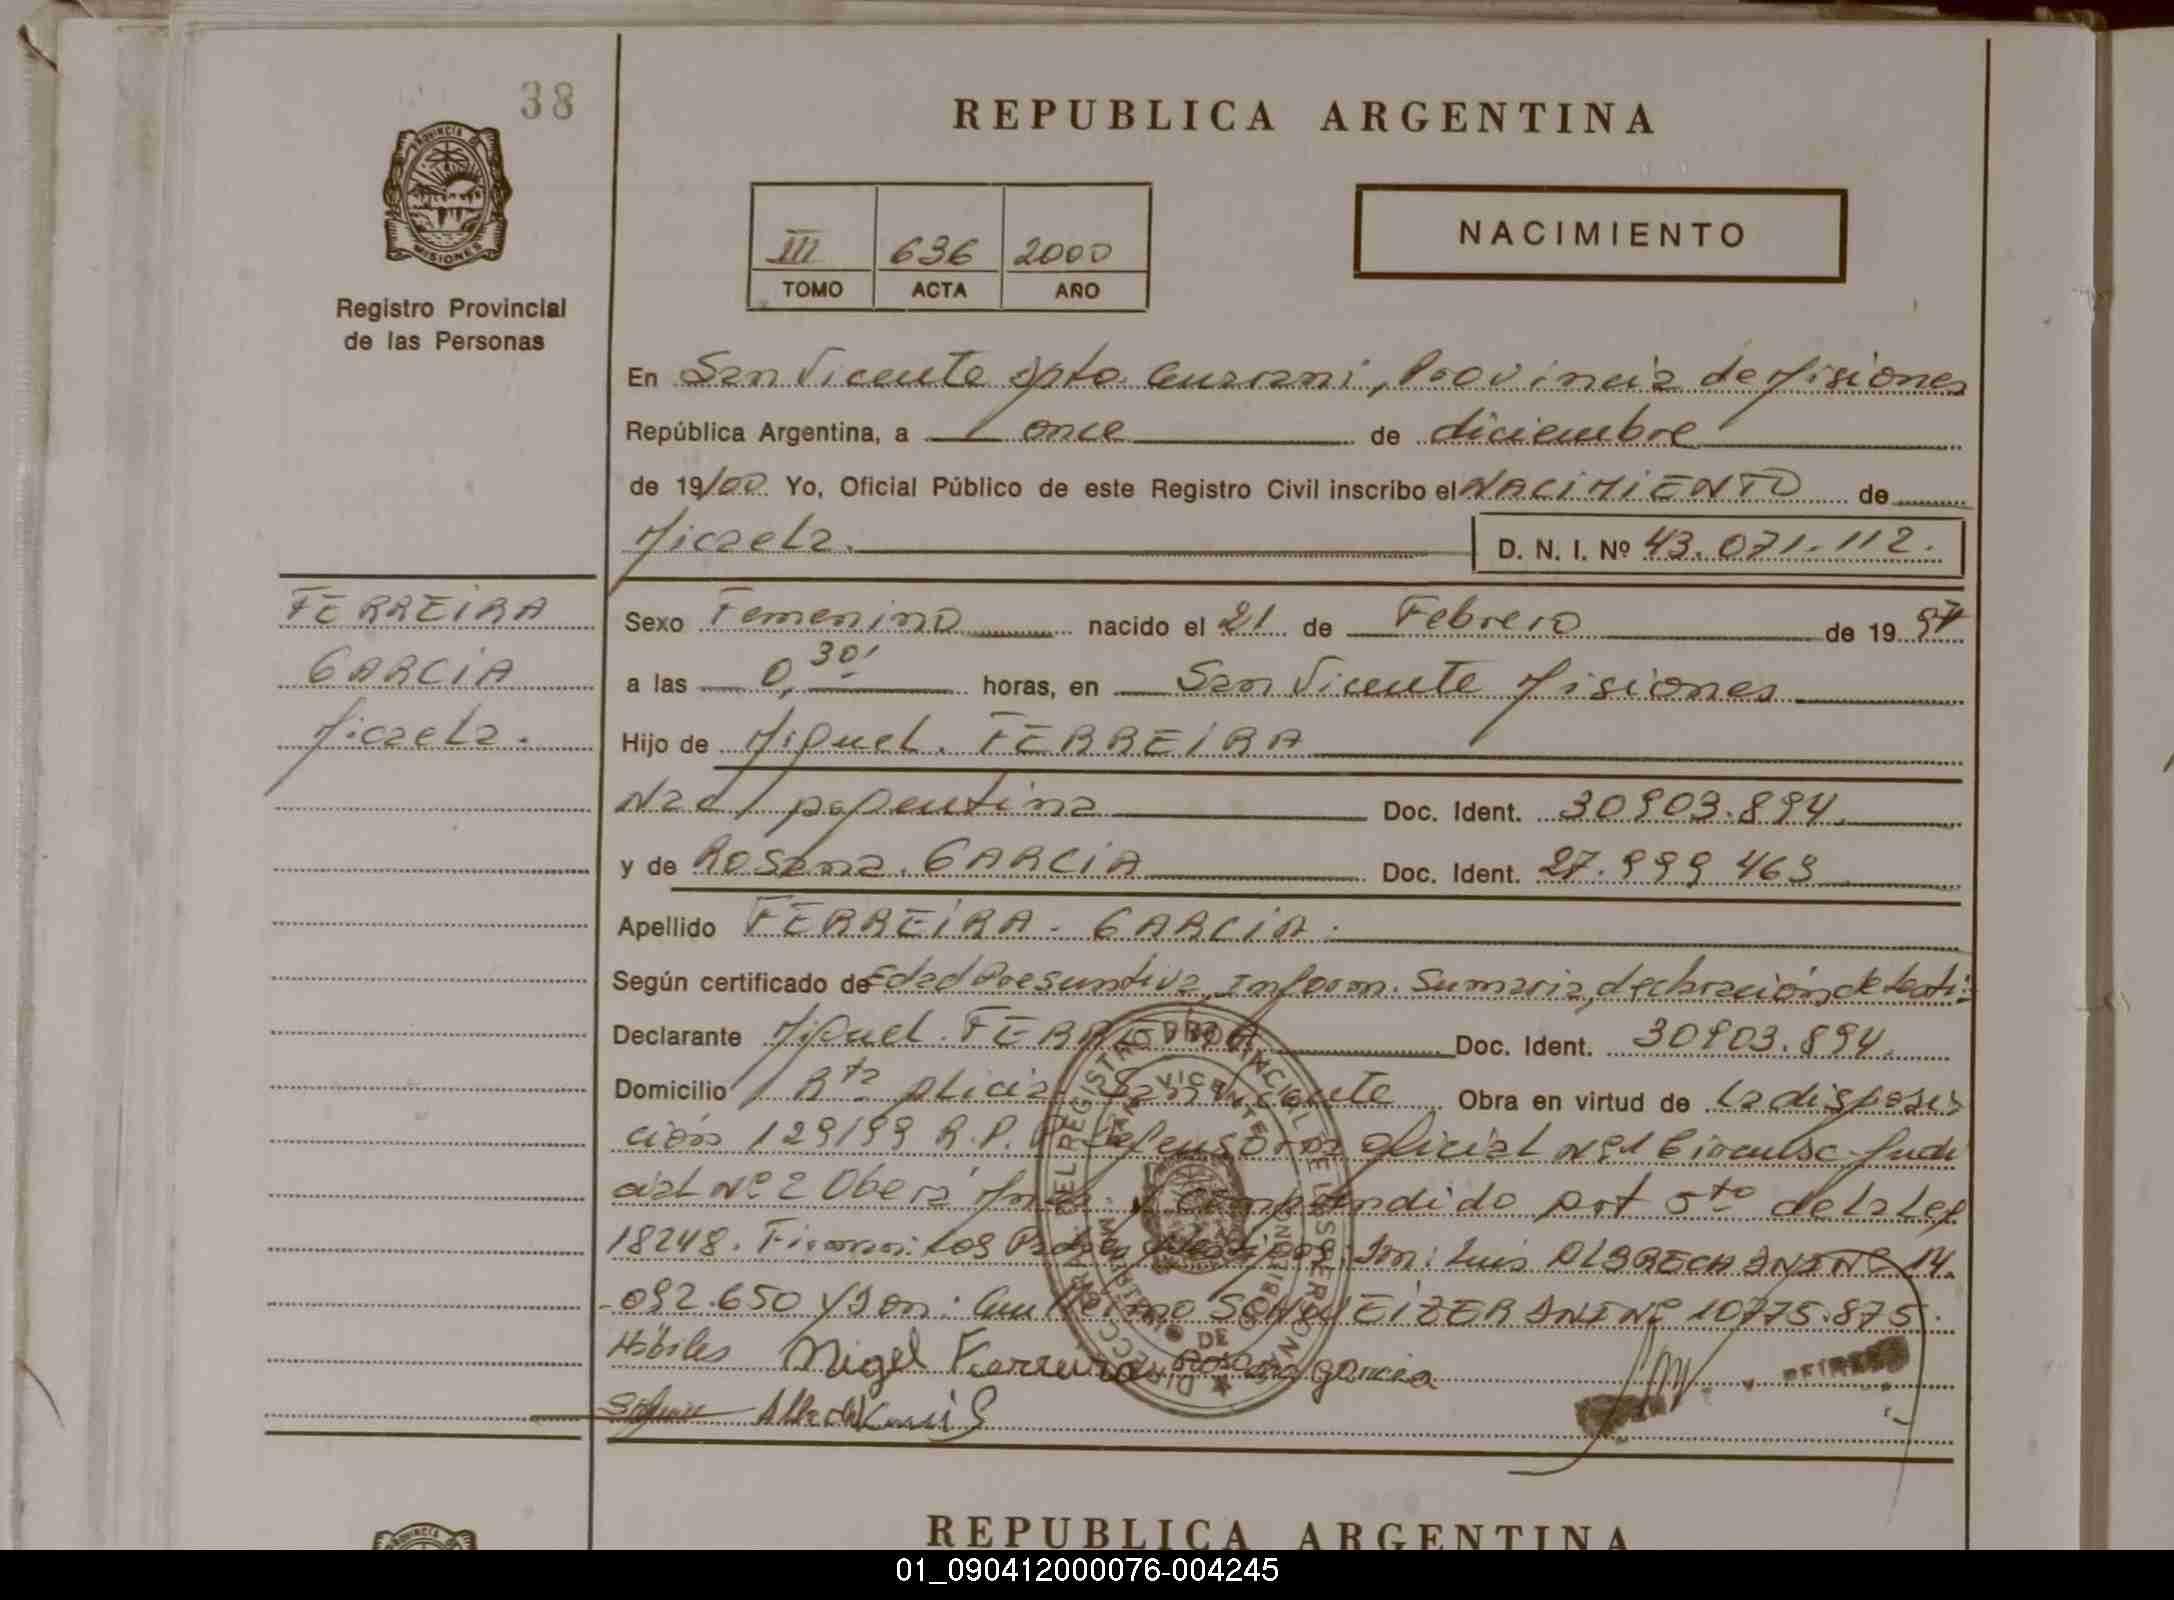 38
REPUBLICA ARGENTINA
PROVINCIA DE
MISIONES
Registro Provincial
de las Personas
III 636 2000
TOMO ACTA AÑO
NACIMIENTO
En San Vicente Dpto. Guarani, Provincia de Misiones
República Argentina, a once de diciembre
de 19/00. Yo, Oficial Público de este Registro Civil inscribo el NACIMIENTO de
Micaela.
D. N. I. Nº 43.071.112.
FERREIRA
GARCIA
Micaela.
Sexo Femenino nacido el 21 de Febrero de 19 97
a las 0,30' horas, en San Vicente Misiones
Hijo de Miguel. FERREIRA
Nac argentina Doc. Ident. 30903.894.
y de Rosana. GARCIA Doc. Ident. 27.999 469
Apellido FERREIRA - GARCIA.
Según certificado de Edad Presuntiva, Inform. Sumaria, declaración de testi-
Declarante Miguel. FERREIRA Doc. Ident. 30903.894.
Domicilio Rta Alicia San Vicente Obra en virtud de La disposi
ción 129/99 R.P.P. Defensoria Oficial Nº 1 Circunsc. Judi
cial Nº 2 Obera Mnes. y comprendido Art 5to de la Ley
18248. Firman: Los Padres y testigos: Don: Luis ALBRECH DNI Nº 14.
092.650 y Don: Guillermo SCHWEIZER DNI Nº 10775.875.
Hábiles Migel Ferreira Rosana garcia
Luis
DIRECCION DEL REGISTRO PROVINCIAL DE LAS PERSONAS
SAN VICENTE
MISIONES
REPUBLICA ARGENTINA
PROVINCIA
01_090412000076-004245